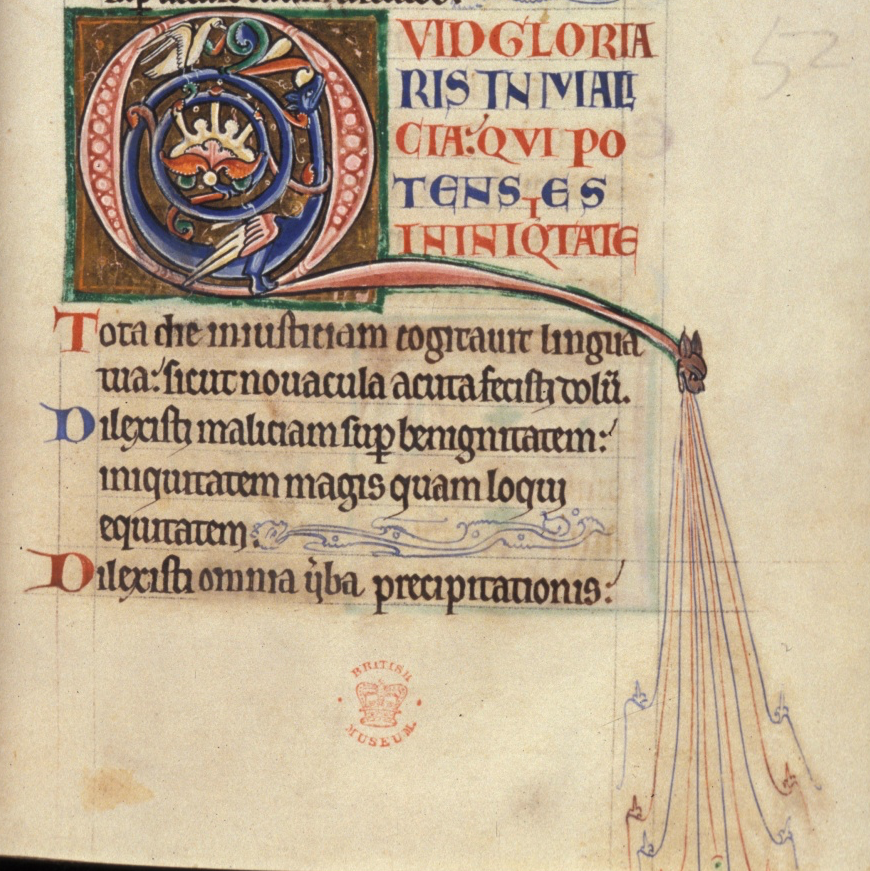 QVID GLORIA
RIS IN MALI
CIA: QVI PO
TENS ES
I
IN INIQTATE
Tota die iniusticiam cogitauit lingua
tua: sicut nouacula acuta fecisti dolū.
Dilexisti maliciam sup benignitatem:
iniquitatem magis quam loqui
equitatem.
Dilexisti omnia ūba precipitationis:
BRITISH
MUSEUM
52